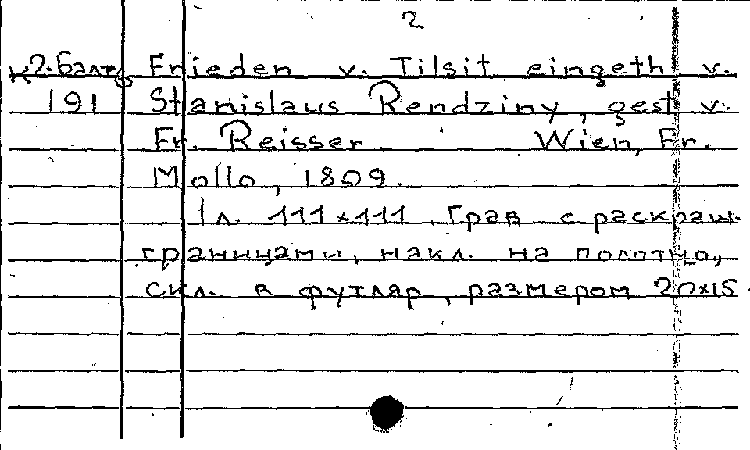 2
К2. Балт Frieden v. Tilsit eingeth v.
191 Stanislaus Rendziny, gest v.
Fr. Reisser Wien, Fr.
Mollo, 1809.
1 л. 111x111. Грав с раскраш.
границами, накл. на полотно,
скл. в футляр, размером 20x15.